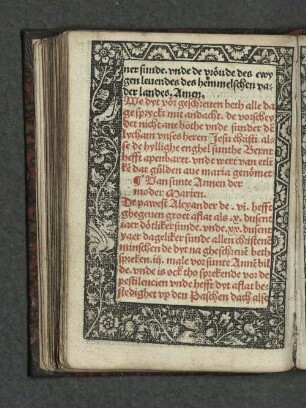 ner sunde. vnde de vröude des ewy
gen leuendes des hēmmelschen va-
der landes, Amen.
We dyt vör geschreuen beth alle da
ge sprickt mit andacht. de vorschey
det nicht ane bothe vnde sunder dē
lycham vnses heren Jesu christi. als
se de hyllighe enghel sunthe Bernt
hefft apenbaret. vnde wert van etli
kē dat gülden aue maria genömet
¶ Van sunte Annen der
moder Marien.
De pawest Alexander de .vi. hefft
ghegeuen groet aflat als .x. dusent
iaer dötliker sunde. vnde .xx. dusent
yaer dageliker sunde allen christenē
minschen de dyt na geschreuē beth
spreken. iij. male vor sunte Annē bil
de. vnde is ock tho sprekende vor de
pestilencien vnde hefft dyt aflat be-
stedighet vp den Paschen dach alse